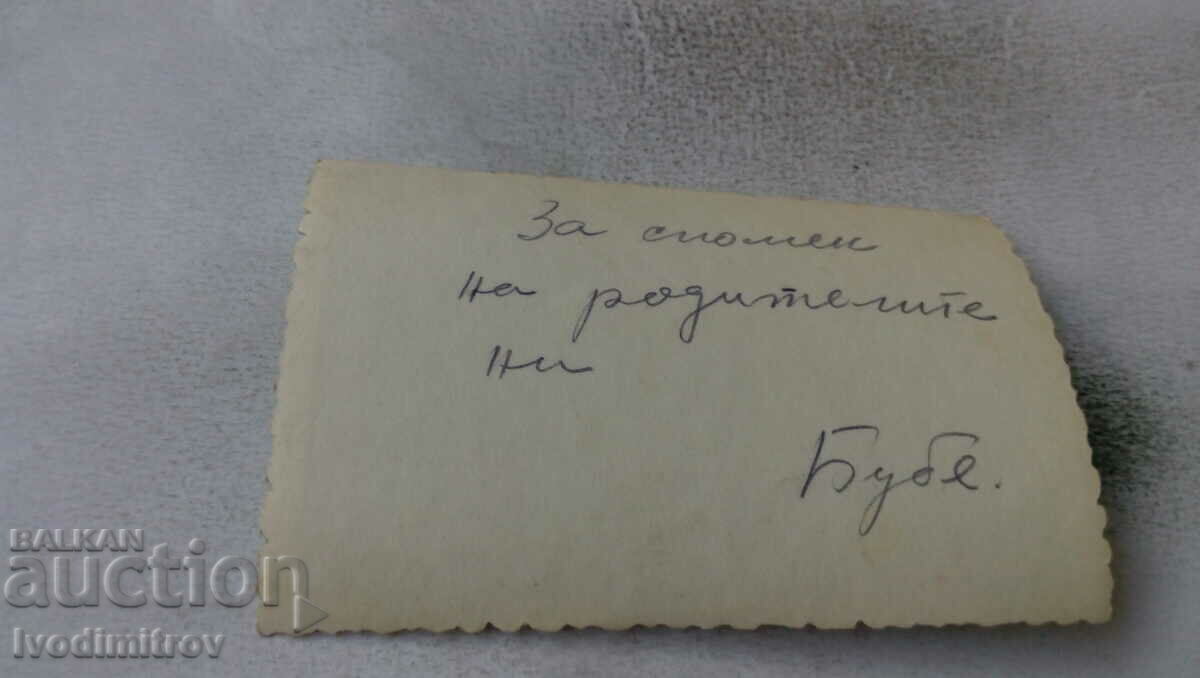 За спомен
на родителите
ни
Бубе.
BALKAN
auction
Ivodimitrov